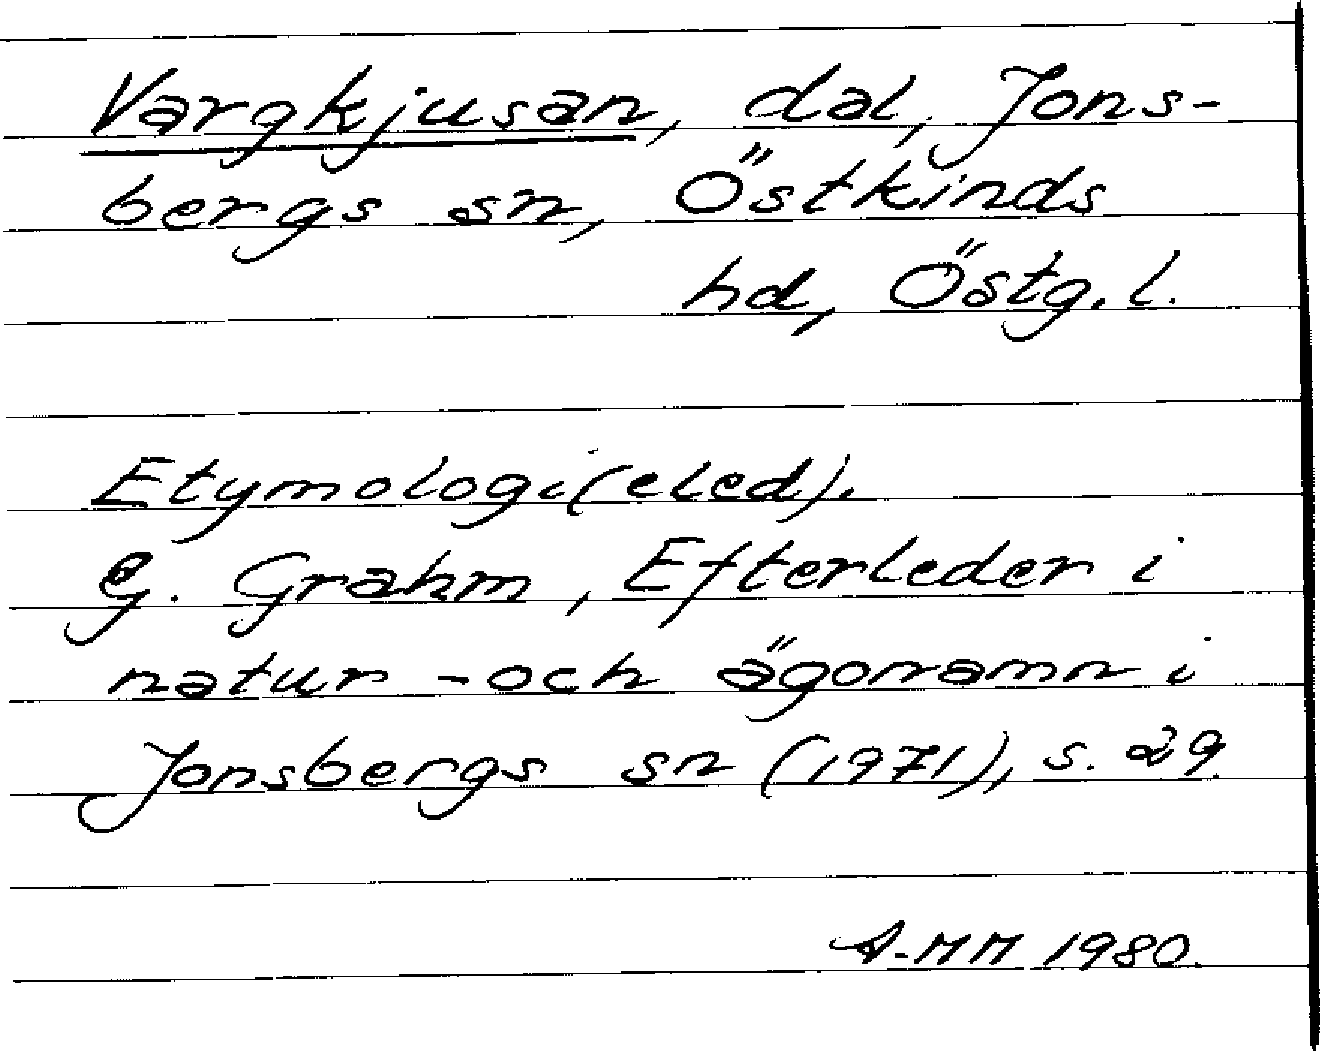 Vargkjusan, dal, Jons-
bergs sn, Östkinds
hd, Östg. l.
Etymologi (eled).
G. Grahm, Efterleder i
natur - och ägonamn i
Jonsbergs sn (1971), s. 29.
A-MM 1980.